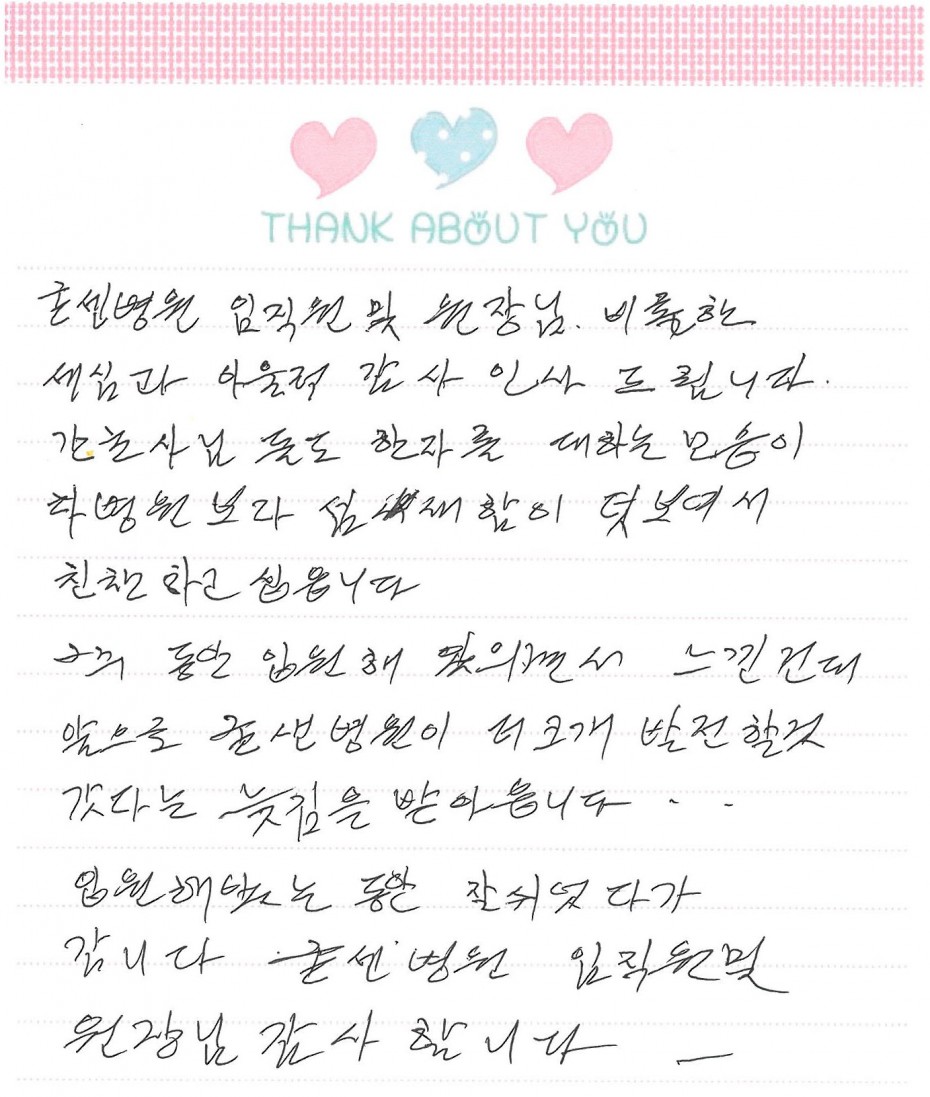 THANK ABOUT YOU
굳센병원 임직원 및 원장님. 비롯한
세심과 아울러 감사 인사 드립니다.
간호사님 들도 환자를 대하는 모습이
타병원 보다 섬재함이 덧보여서
친찬하고 씁읍니다
동안 입원해 느낀건대
앞으로 굳센병원이 더크게 발전할것
갓다는 늣김을 받아읍니다 . .
입원해 있는 동안 잘쉬었다가
갑니다 굳센병원 임직원및
원장님 감사 합니다